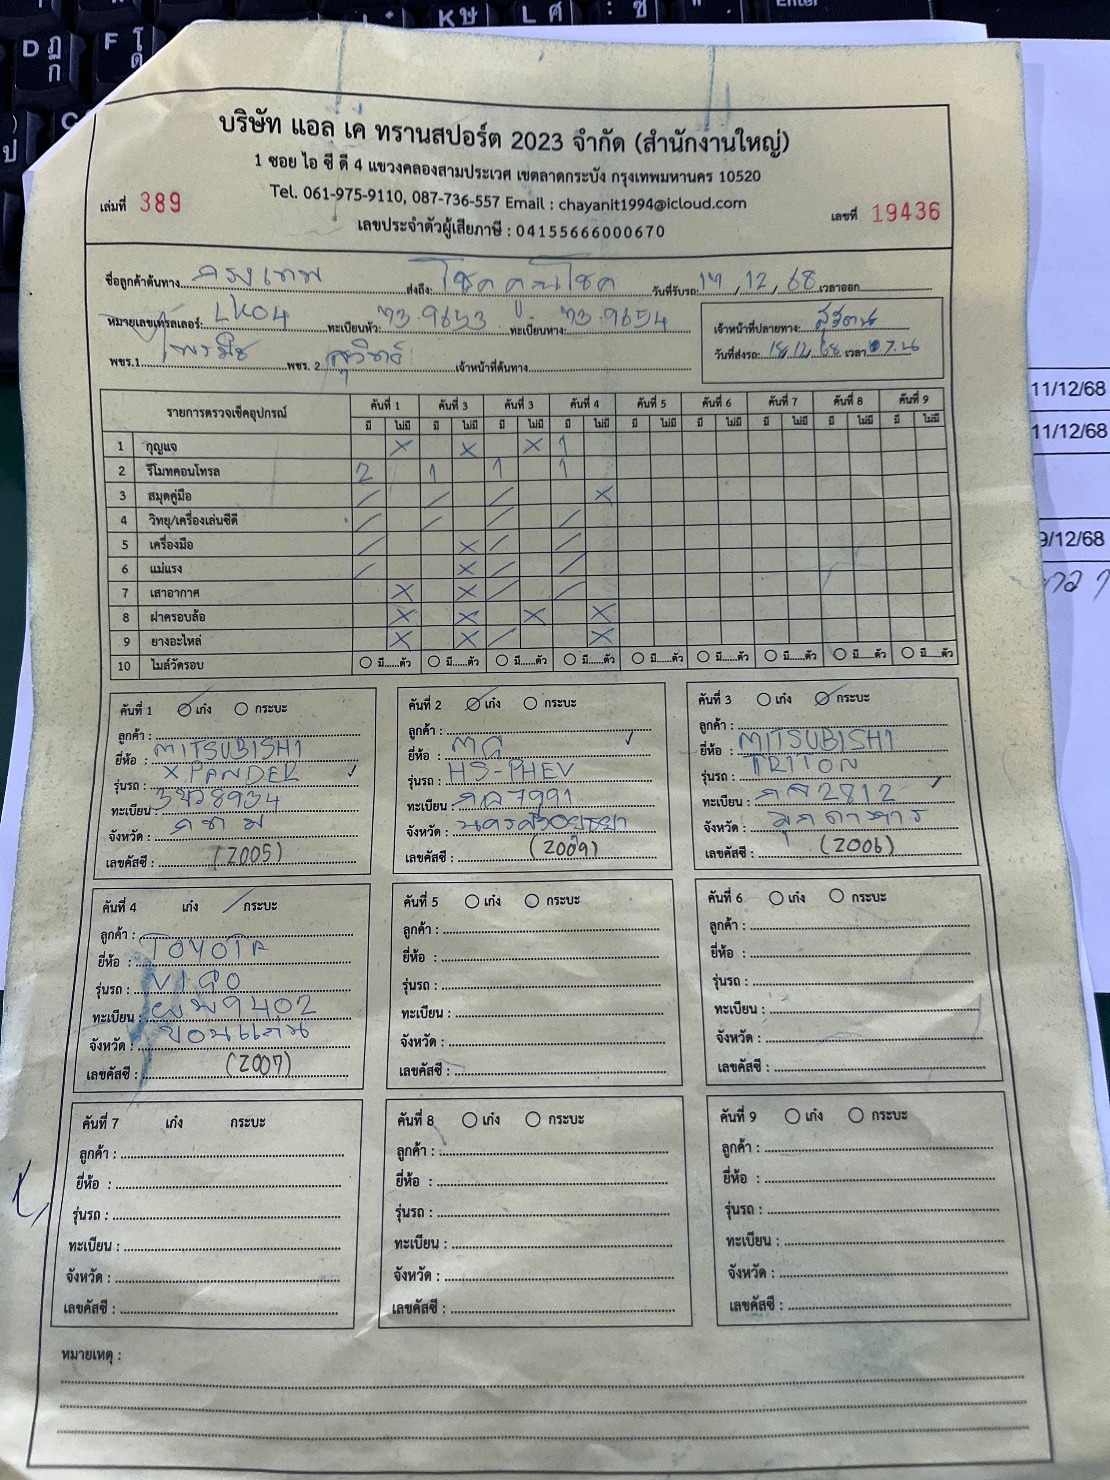 บริษัท แอล เค ทรานสปอร์ต 2023 จำกัด (สำนักงานใหญ่)
1 ซอย ไอ ซี ดี 4 แขวงคลองสามประเวศ เขตลาดกระบัง กรุงเทพมหานคร 10520
Tel. 061-975-9110, 087-736-557 Email : chayanit1994@icloud.com
เล่มที่ 389 เลขที่ 19436
เลขประจำตัวผู้เสียภาษี : 04155666000670
ชื่อลูกค้าต้นทาง กรุงเทพ ส่งถึง: โชคคูณโชค วันที่รับรถ: 17, 12, 68 เวลาออก
หมายเลขเทรลเลอร์: LK04 ทะเบียนหัว: 73-9653 ทะเบียนหาง: 73-9654
เจ้าหน้าที่ปลายทาง:
วันที่ส่งรถ: 18/12/68 เวลา 07.น
พขร.1 พขร. 2 เจ้าหน้าที่ต้นทาง
รายการตรวจเช็คอุปกรณ์ คันที่ 1 คันที่ 3 คันที่ 3 คันที่ 4 คันที่ 5 คันที่ 6 คันที่ 7 คันที่ 8 คันที่ 9
มี ไม่มี มี ไม่มี มี ไม่มี มี ไม่มี มี ไม่มี มี ไม่มี มี ไม่มี มี ไม่มี มี ไม่มี
1 กุญแจ 1
2 รีโมทคอนโทรล 2 1 1 1
3 สมุดคู่มือ
4 วิทยุ/เครื่องเล่นซีดี
5 เครื่องมือ
6 แม่แรง
7 เสาอากาศ
8 ฝาครอบล้อ
9 ยางอะไหล่
10 ไมล์วัดรอบ มี......ตัว มี......ตัว มี......ตัว มี......ตัว มี......ตัว มี......ตัว มี......ตัว มี......ตัว มี......ตัว
คันที่ 1 เก๋ง กระบะ
ลูกค้า :
ยี่ห้อ : MITSUBISHI
รุ่นรถ : XPANDER
ทะเบียน :
จังหวัด : กทม
เลขคัสซี : (2005)
คันที่ 2 เก๋ง กระบะ
ลูกค้า :
ยี่ห้อ : MG
รุ่นรถ : HS-PHEV
ทะเบียน : 7991
จังหวัด :
เลขคัสซี : (2009)
คันที่ 3 เก๋ง กระบะ
ลูกค้า :
ยี่ห้อ : MITSUBISHI
รุ่นรถ : TRITON
ทะเบียน : 2812
จังหวัด : มุกดาหาร
เลขคัสซี : (2006)
คันที่ 4 เก๋ง กระบะ
ลูกค้า :
ยี่ห้อ : TOYOTA
รุ่นรถ : VIGO
ทะเบียน : 9402
จังหวัด : ขอนแก่น
เลขคัสซี : (2007)
คันที่ 5 เก๋ง กระบะ
ลูกค้า :
ยี่ห้อ :
รุ่นรถ :
ทะเบียน :
จังหวัด :
เลขคัสซี :
คันที่ 6 เก๋ง กระบะ
ลูกค้า :
ยี่ห้อ :
รุ่นรถ :
ทะเบียน :
จังหวัด :
เลขคัสซี :
คันที่ 7 เก๋ง กระบะ
ลูกค้า :
ยี่ห้อ :
รุ่นรถ :
ทะเบียน :
จังหวัด :
เลขคัสซี :
คันที่ 8 เก๋ง กระบะ
ลูกค้า :
ยี่ห้อ :
รุ่นรถ :
ทะเบียน :
จังหวัด :
เลขคัสซี :
คันที่ 9 เก๋ง กระบะ
ลูกค้า :
ยี่ห้อ :
รุ่นรถ :
ทะเบียน :
จังหวัด :
เลขคัสซี :
หมายเหตุ :
11/12/68
11/12/68
9/12/68